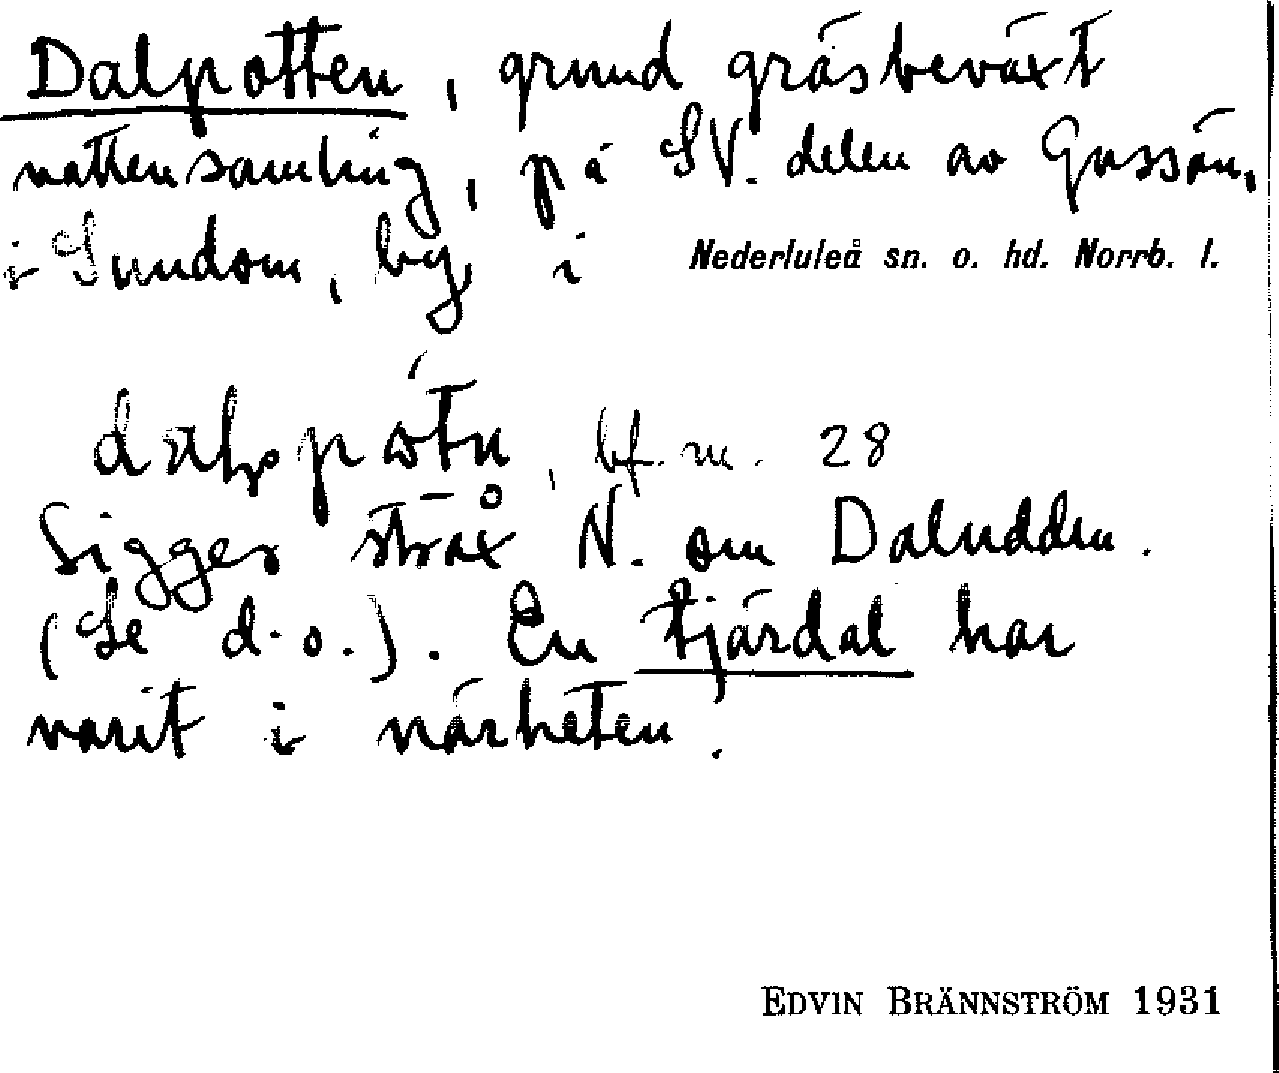 Dalpotten, grund gräsbeväxt
vattensamling, på SV. delen av Gussön,
i Sundom, by, i Nederluleå sn. o. hd. Norrb. l.
bf. m. 28
Ligger strax N. om Daludden.
(Se d.o.). En tjärdal har
varit i närheten.
EDVIN BRÄNNSTRÖM 1931